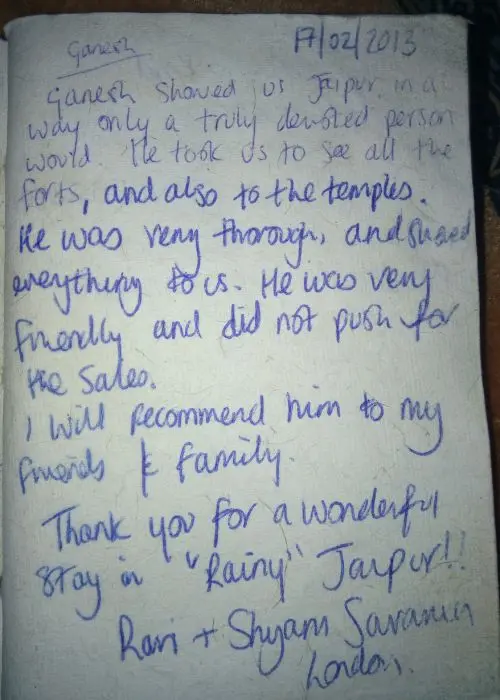 Ganesh
17/02/2013
Ganesh showed us Jaipur in a
way only a truly devoted person
would. He took us to see all the
forts, and also to the temples.
He was very thorough, and shared
everything to us. He was very
friendly and did not push for
the sales.
I will recommend him to my
friends & family.
Thank you for a wonderful
stay in "Rainy" Jaipur!!
+ Shyam
London.